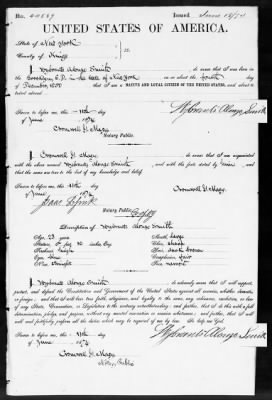 No. 40559 Issued June 12/74
UNITED STATES OF AMERICA.
State of New York
County of Kings } ss.
I, Wybrants Alonzo Smith, do swear that I was born in
Brooklyn, E.D. in the State of New York on or about the fourth day
of December, 1850; that I am a NATIVE AND LOYAL CITIZEN OF THE UNITED STATES, and about to
travel abroad.
Sworn to before me, this 11th day
of June 1874
Wybrants Alonzo Smith
Notary Public.
I, do swear that I am acquainted
with the above named Wybrants Alonzo Smith, and with the facts stated by him, and
that the same are true to the best of my knowledge and belief.
Sworn to before me, this 11th day
of June 1874
Notary Public.
Description of Wybrants Alonzo Smith
Age, 23 years
Stature, 5 feet inches Eng.
Forehead,
Eyes, blue
Nose, straight
Mouth, large
Chin,
Hair, dark brown
Complexion, fair
Face,
I, Wybrants Alonzo Smith, do solemnly swear that I will support,
protect, and defend the Constitution and Government of the United States against all enemies, whether domestic
or foreign; and that I will bear true faith, allegiance, and loyalty to the same, any ordinance, resolution, or law
of any State, Convention, or Legislature to the contrary notwithstanding; and further, that I do this with a full
determination, pledge, and purpose, without any mental reservation or evasion whatsoever; and further, that I will
well and faithfully perform all the duties which may be required of me by law: So help me God.
Wybrants Alonzo Smith
Sworn to before me, this 11th day
of June 1874
Notary Public